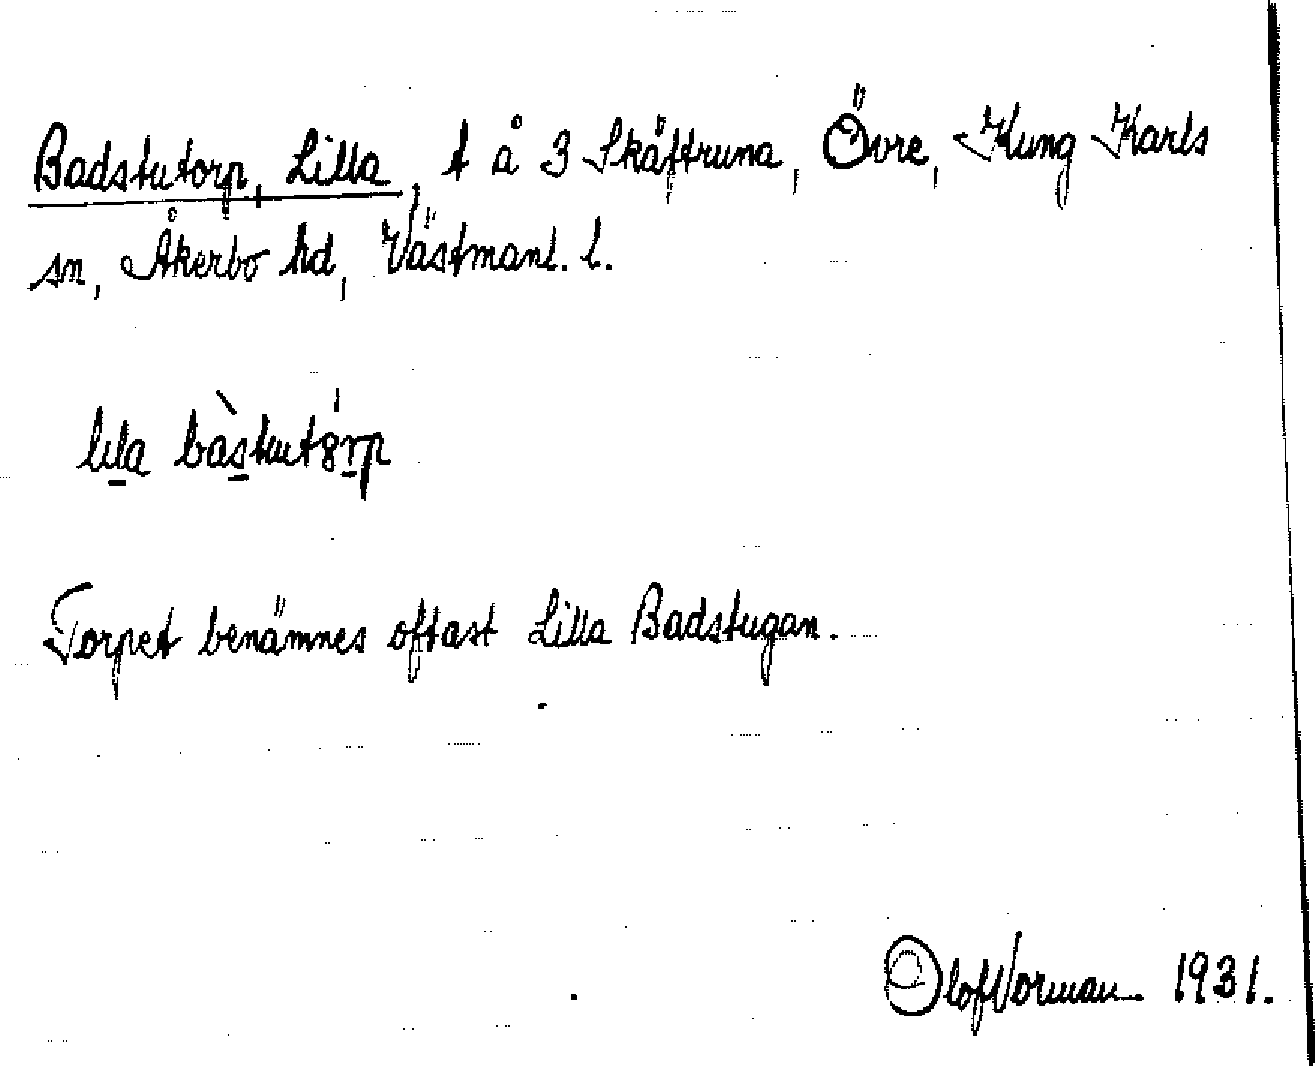 Badstutorp, Lilla, t å 3 Skäftruna, Övre, Kung Karls
sn, Åkerbo hd, Västmanl. l.
lila bàstut8rp
Torpet benämnes oftast Lilla Badstugan.
Olof Norman 1931.